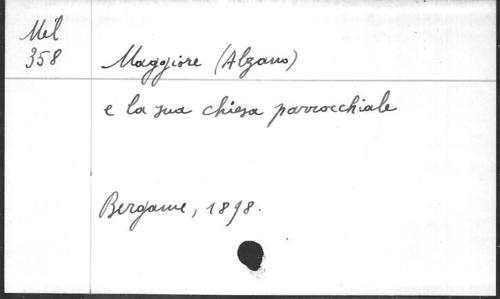 Mél
358
Maggiore (Alzano)
e la sua chiesa parrocchiale
Bergame, 1898.